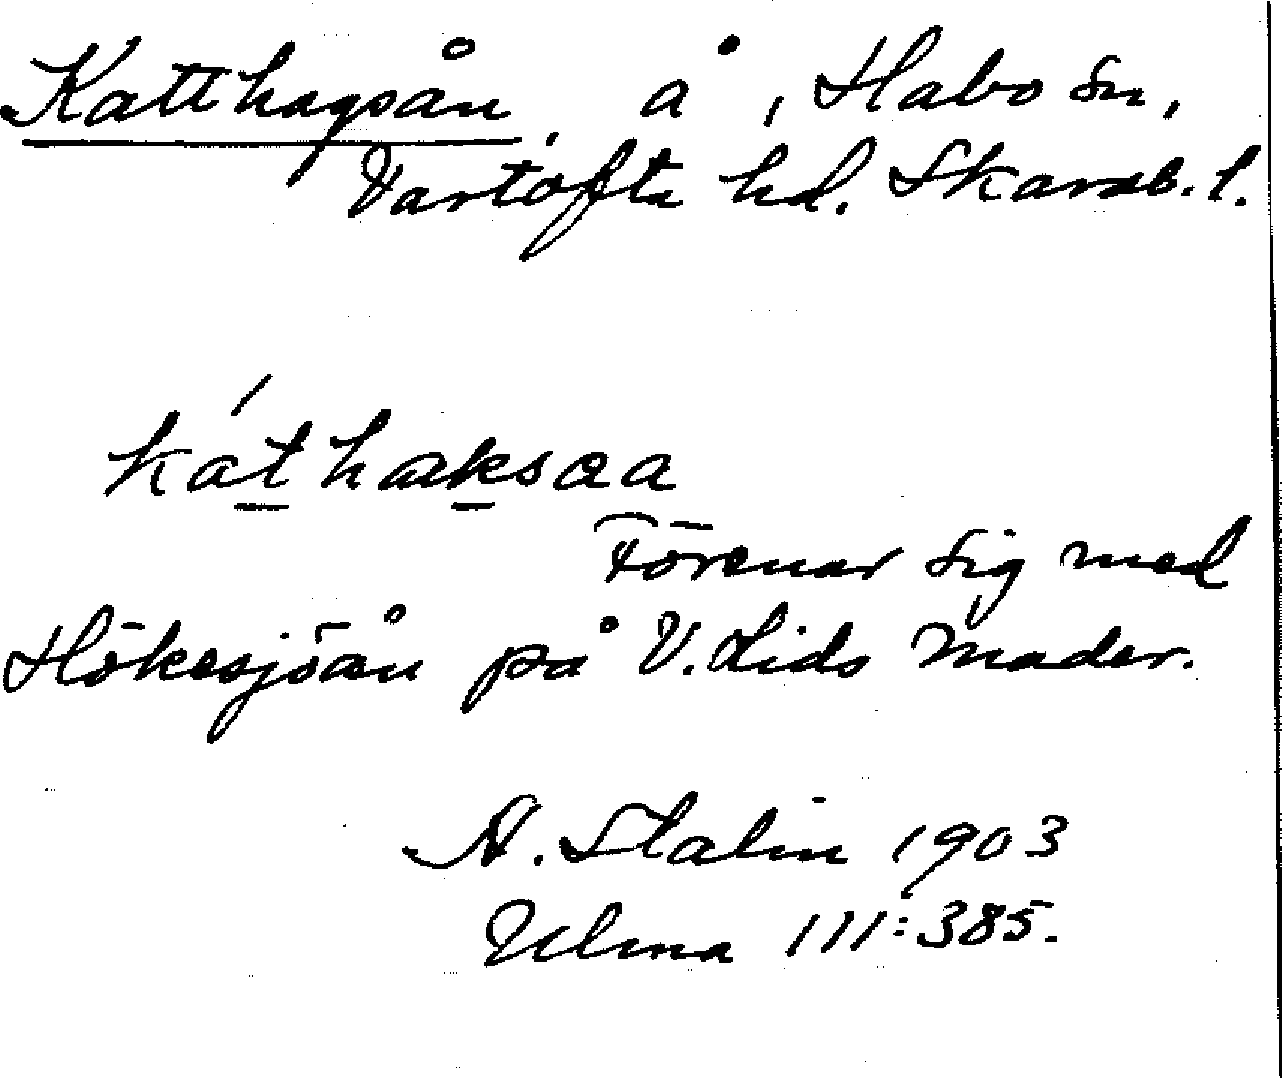 Katthagsån, å, Habo sn,
Vartofta hd. Skarab. l.
káthaksaa
Förenar sig med
Hökesjöån på V. Lids mader.
A. Stalin 1903
Ulma 111:385.